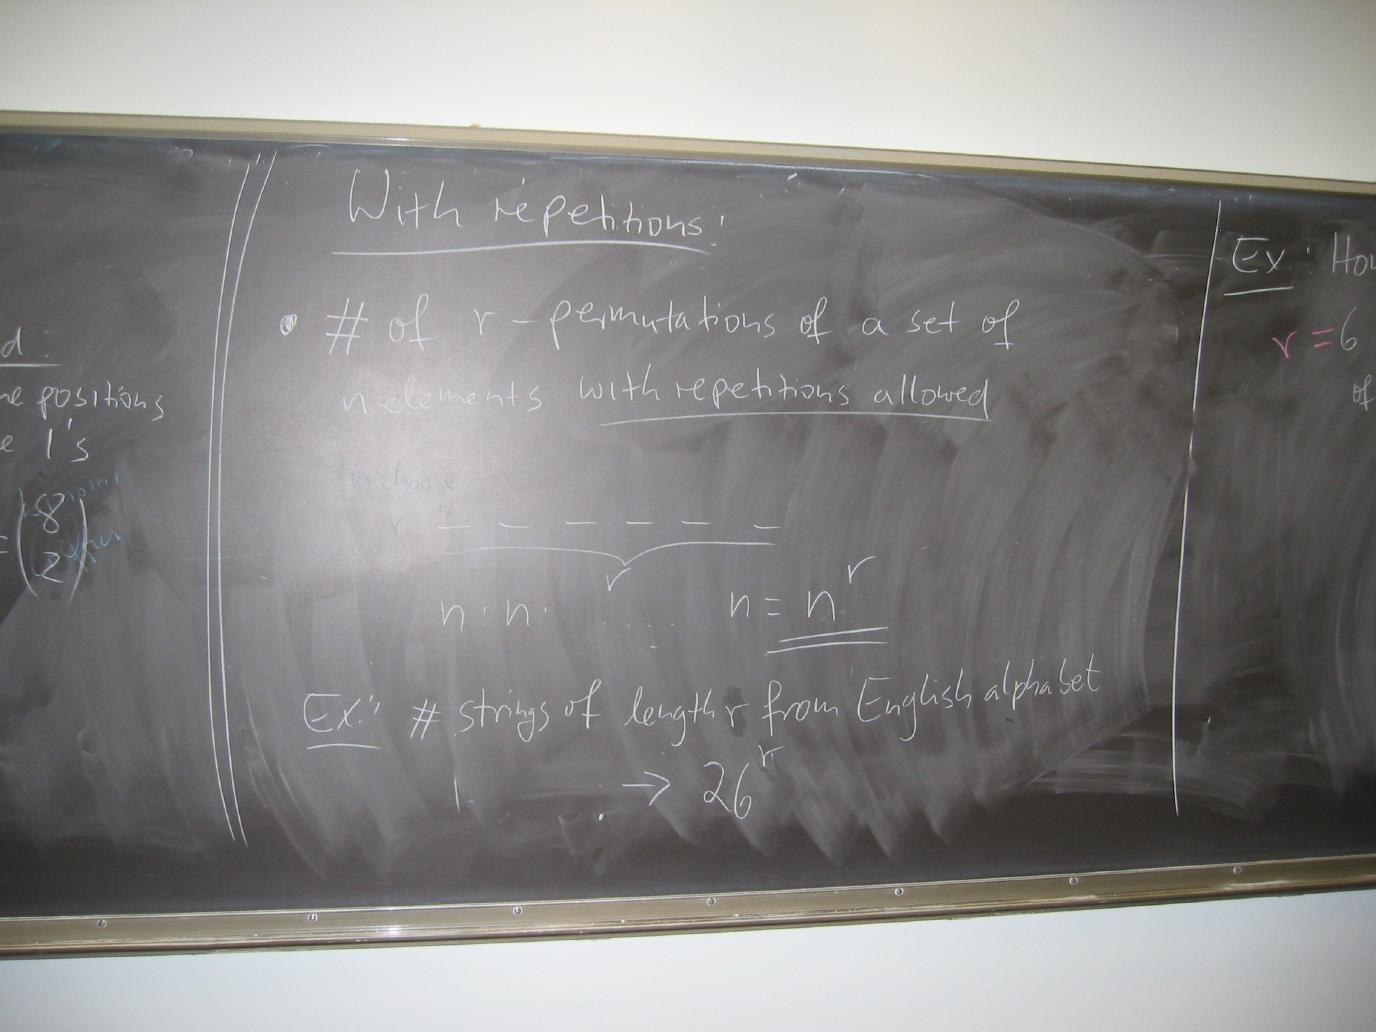 d.
positions
1's
= (8
2)
With repetitions:
# of r-permutations of a set of
n elements with repetitions allowed
n choose
r
_ _ _ _ _ _
r
n · n · .... n = n^r
Ex: # strings of length r from English alphabet
→ 26^r
Ex: How
r = 6
of